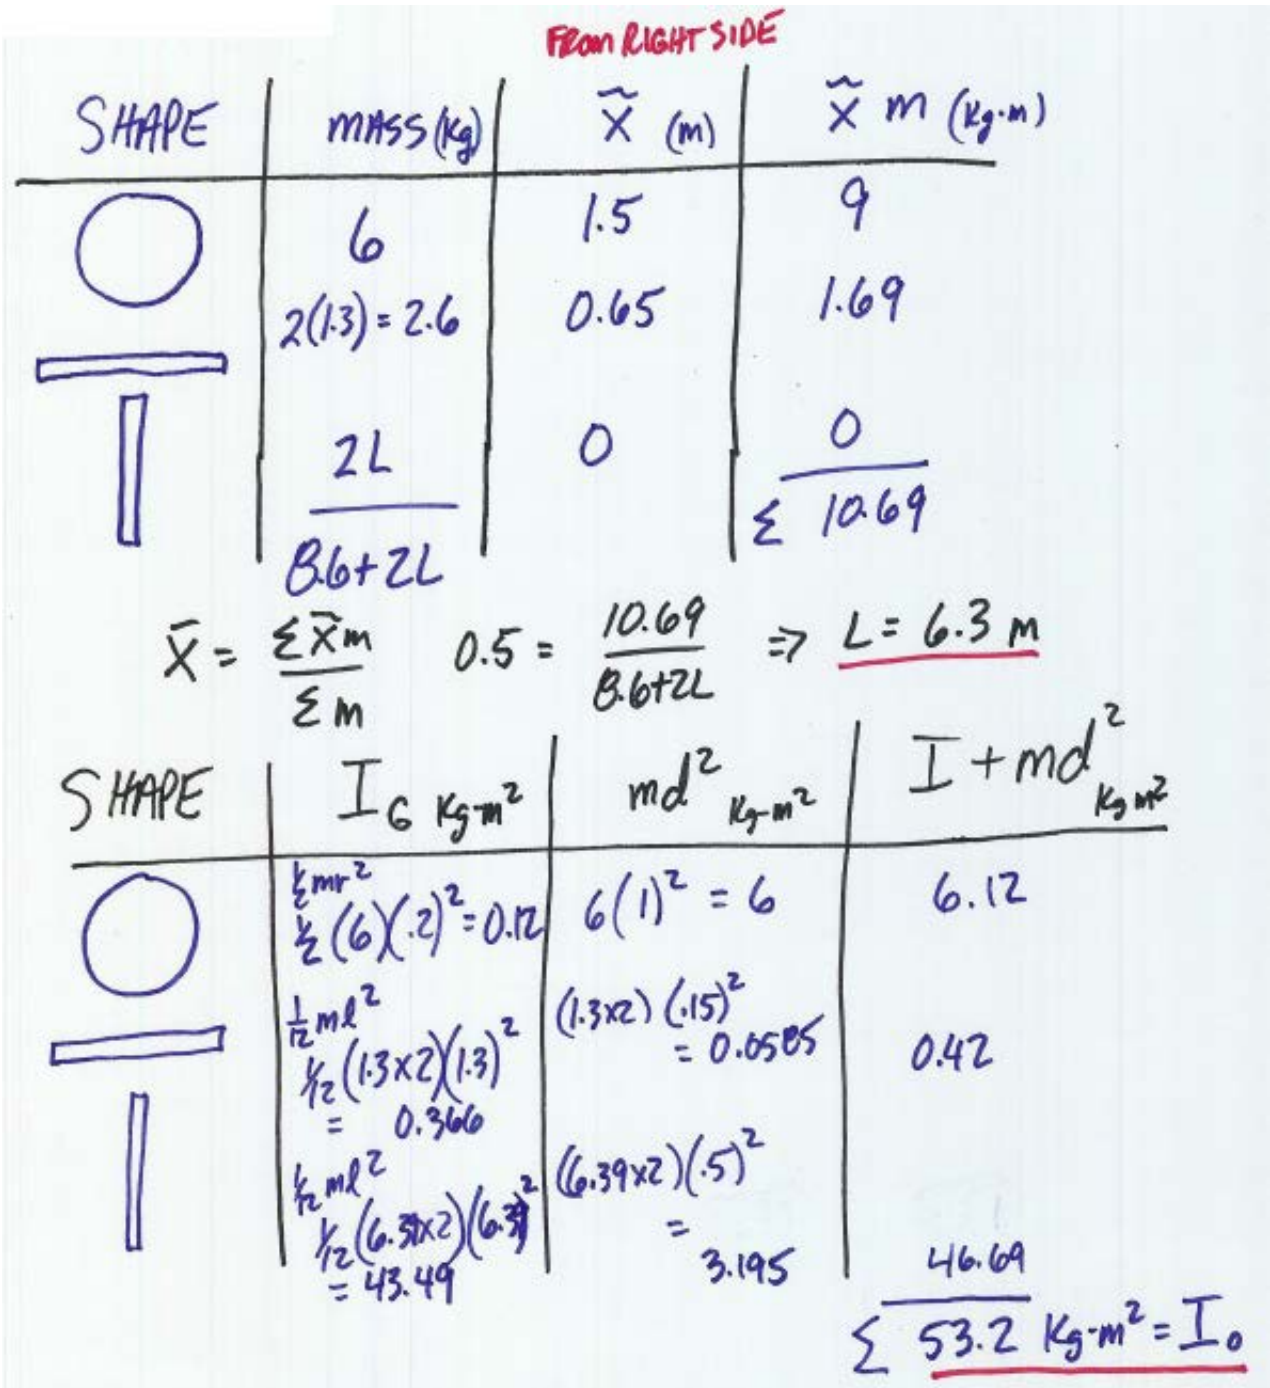 FROM RIGHT SIDE
SHAPE MASS (Kg) x̃ (m) x̃ m (Kg·m)
6 1.5 9
2(1.3) = 2.6 0.65 1.69
2L 0 0
8.6+2L Σ 10.69
x̄ = Σx̃m / Σm 0.5 = 10.69 / 8.6+2L ⇒ L = 6.3 m
SHAPE I_G Kg-m² md² Kg-m² I + md² Kg m²
½mr²
½(6)(.2)² = 0.12 6(1)² = 6 6.12
1/12 ml² (1.3x2)(.15)²
1/12(1.3x2)(1.3)² = 0.0585 0.42
= 0.366
1/12 ml² (6.39x2)(.5)²
1/12(6.39x2)(6.39)² =
= 43.49 3.195 46.69
Σ 53.2 Kg-m² = I₀